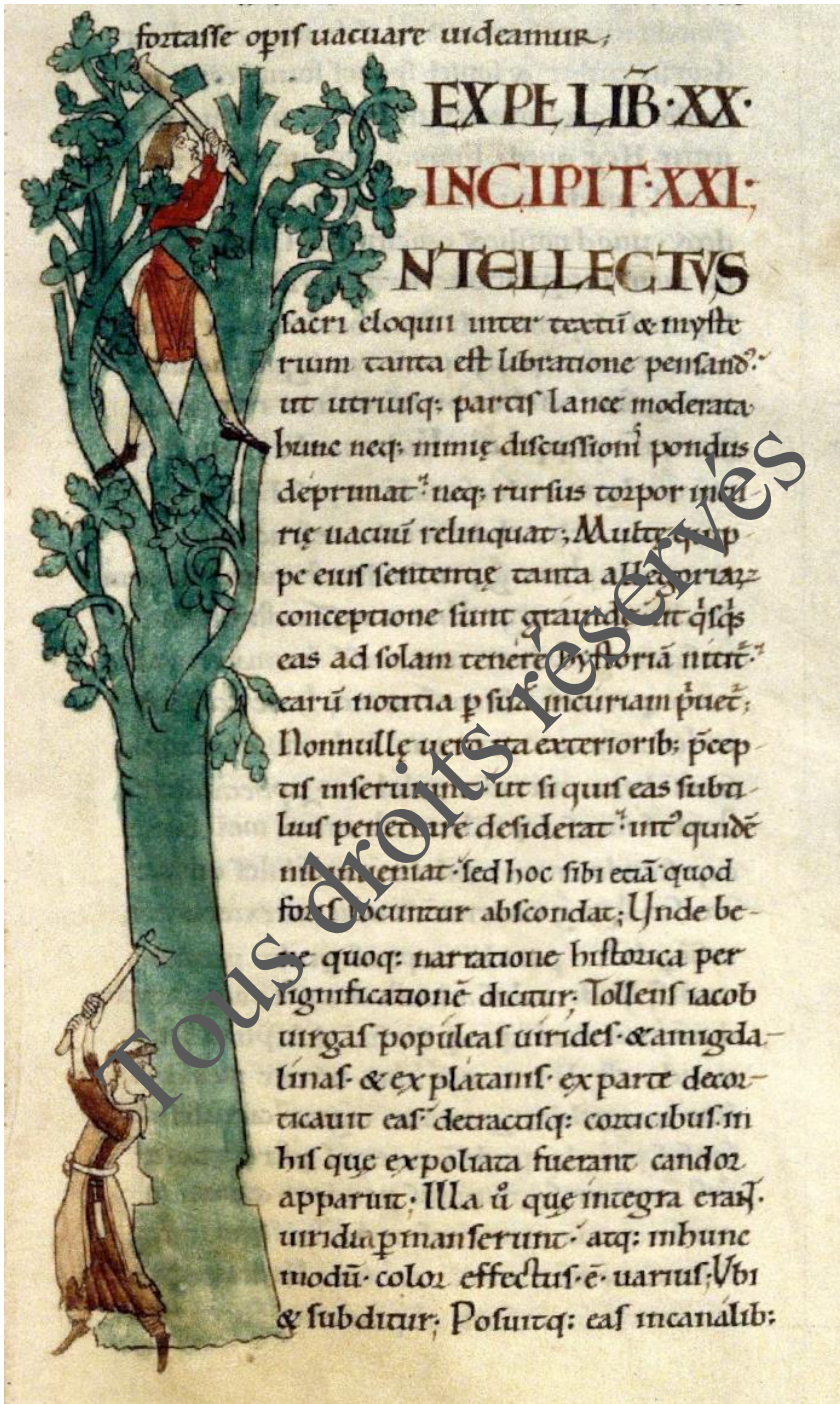 fortasse opis uacuare uideamur;
EXPL LIB̃·XX·
INCIPIT·XXI·
NTELLECTVS
sacri eloquii inter textū & myste
rium tanta est libratione pensand
ut utriusq; partis lance moderata
hunc neq; nimię discussionis pondus
deprimat neq; rursus torpor incu
rię uacuū relinquat; Multę quip
pe eius sententię tanta allegoriaꝝ
conceptione sunt grauidę ut qͥsqͥs
eas ad solam tenere hystoriā nitit̃
earū notitia ꝑ suā incuriam pͥuet̃;
Nonnullę uero ita exteriorib; p̄cep
tis inseruiunt ut si quis eas subti
lius penetrare desiderat int᾽ quidē
nil inueniat sed hoc sibi etiā quod
foris locuntur abscondat; Unde be-
ne quoq; narratione historica per
significationē dicitur; Tollens iacob
uirgas populeas uirides·& amigda-
linas·& ex platanis· ex parte decor-
ticauit eas detractisq; corticibus in
his que expoliata fuerant candor
apparuit· Illa ů que integra erant·
uiridia ꝑmanserunt· atq; in hunc
modū· color effectus·ē· uarius; Vbi
& subditur; Posuitq; eas in canalib;
Tous droits réservés